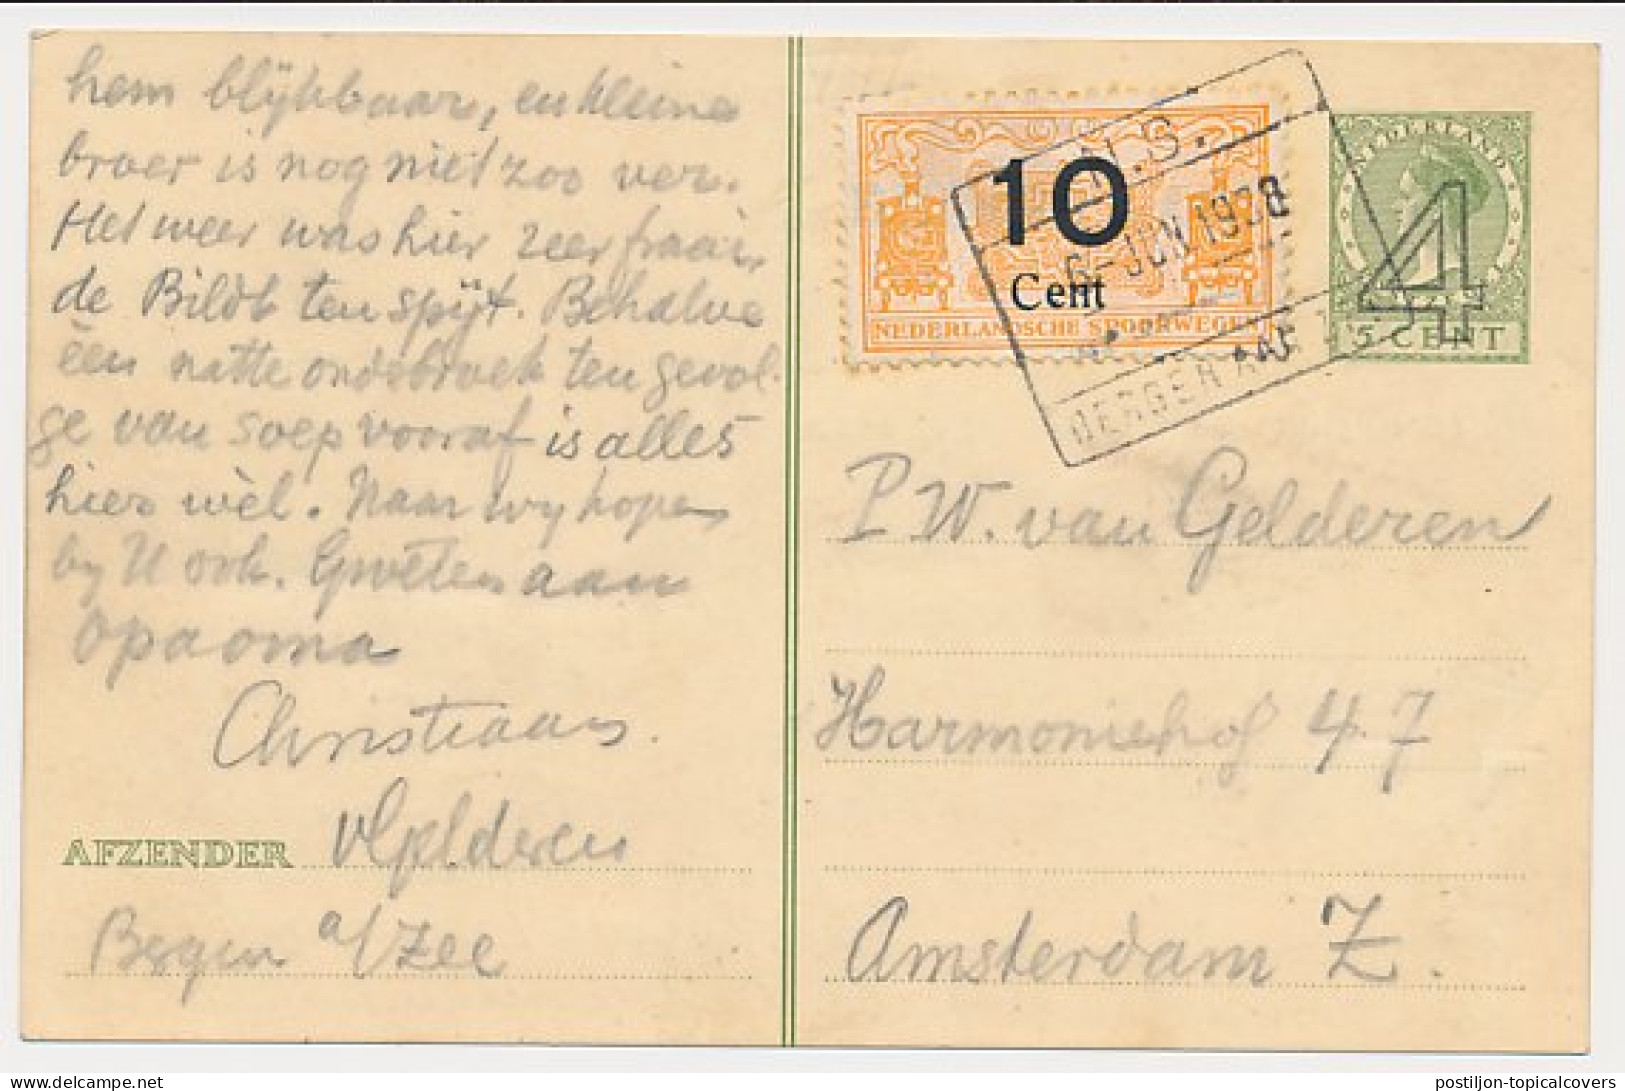 hem blijkbaar, en kleine
broer is nog niet zoo ver.
Het weer was hier zeer fraai,
de Bildt ten spijt. Behalve
één natte onderbroek ten gevol-
ge van soep vooraf is alles
hier wèl. Naar wy hopen
by U ook. Groeten aan
opa oma
Christiaan
v Gelderen
AFZENDER
Bergen a/Zee
10
Cent
NEDERLANDSCHE SPOORWEGEN
N.S.
6-JUN 1938
BERGEN
NEDERLAND
4
5 CENT
P W. van Gelderen
Harmoniehof 47
Amsterdam Z.
postiljon-topicalcovers